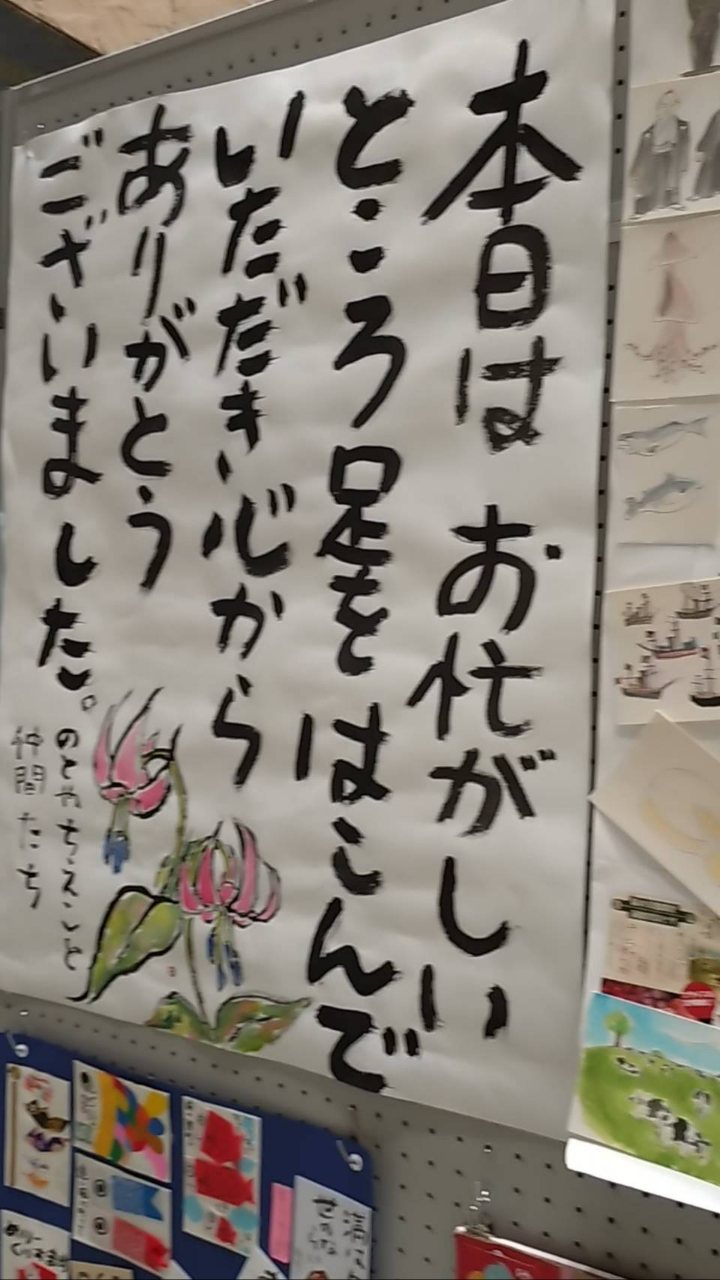 本日は お忙がしい
ところ足を はこんで
いただき、心から
ありがとう
ございました。
のとやちえこと
仲間たち